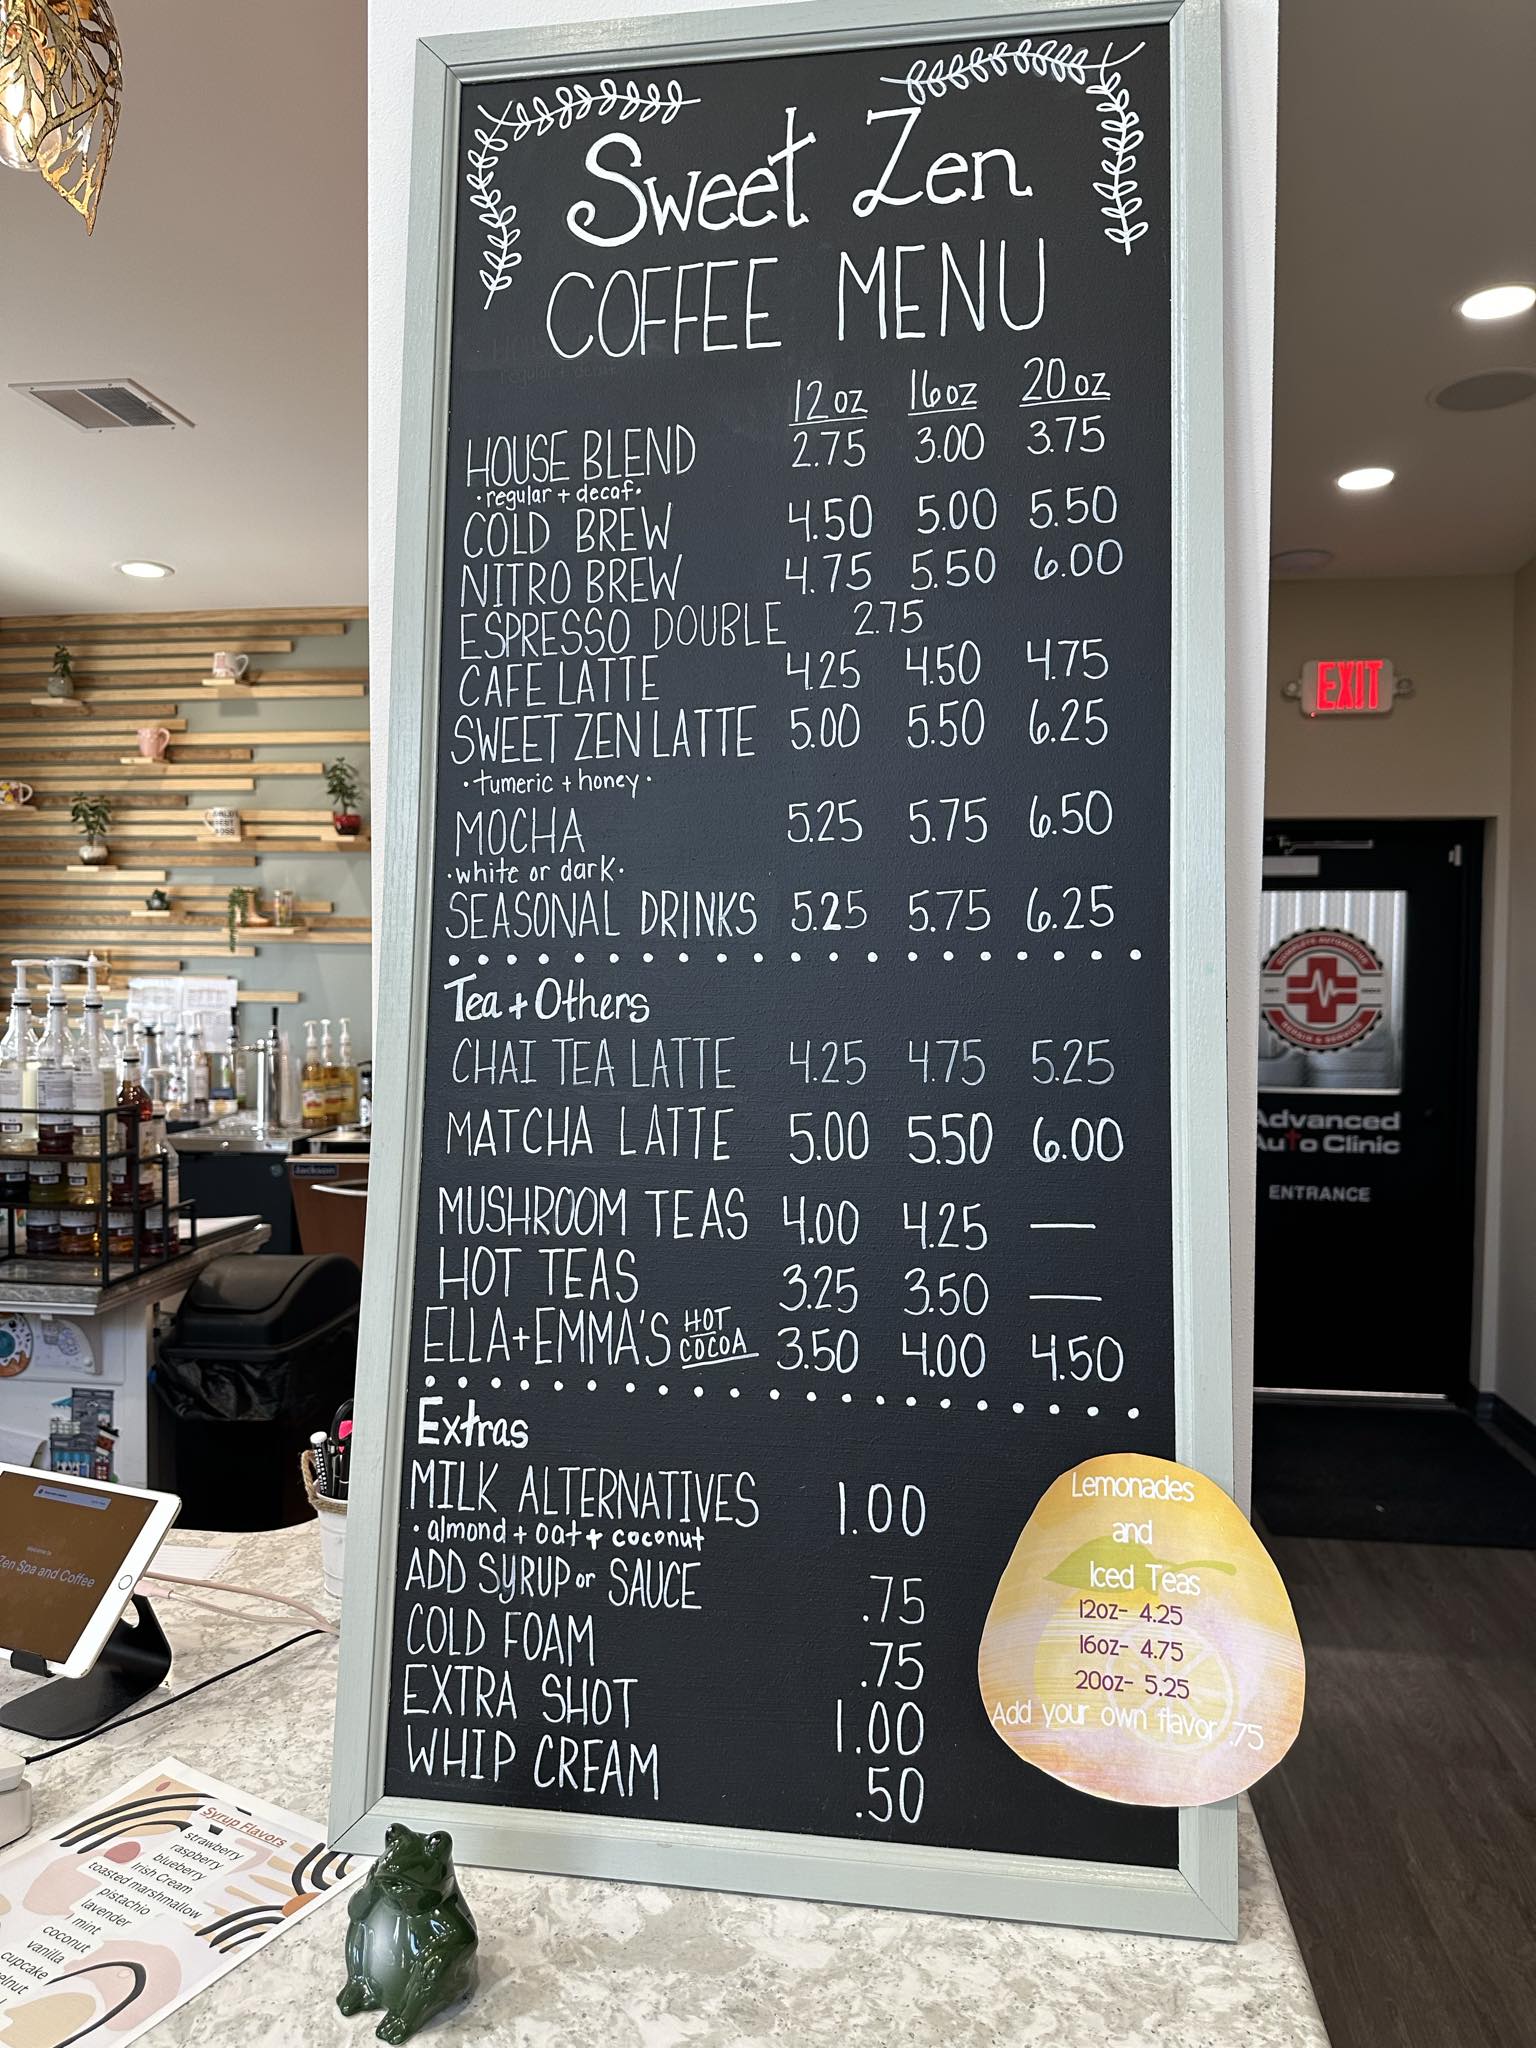 Sweet Zen
COFFEE MENU
12oz 16oz 20oz
HOUSE BLEND 2.75 3.00 3.75
• regular + decaf •
COLD BREW 4.50 5.00 5.50
NITRO BREW 4.75 5.50 6.00
ESPRESSO DOUBLE 2.75
CAFE LATTE 4.25 4.50 4.75
SWEET ZEN LATTE 5.00 5.50 6.25
• tumeric + honey •
MOCHA 5.25 5.75 6.50
• white or dark •
SEASONAL DRINKS 5.25 5.75 6.25
Tea + Others
CHAI TEA LATTE 4.25 4.75 5.25
MATCHA LATTE 5.00 5.50 6.00
MUSHROOM TEAS 4.00 4.25 —
HOT TEAS 3.25 3.50 —
ELLA+EMMA'S HOT COCOA 3.50 4.00 4.50
Extras
MILK ALTERNATIVES 1.00
• almond + oat + coconut
ADD SYRUP or SAUCE .75
COLD FOAM .75
EXTRA SHOT 1.00
WHIP CREAM .50
Lemonades
and
Iced Teas
12oz- 4.25
16oz- 4.75
20oz- 5.25
Add your own flavor .75
EXIT
Advanced
Auto Clinic
ENTRANCE
Zen Spa and Coffee
Jackson
Syrup Flavors
strawberry
raspberry
blueberry
Irish Cream
toasted marshmallow
pistachio
lavender
mint
coconut
vanilla
cupcake